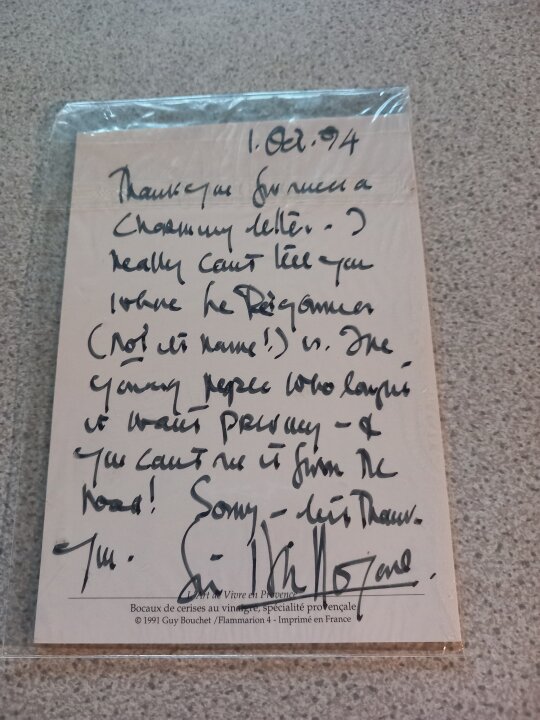 1. Oct. 94
Thank you for such a
charming letter. I
really can't tell you
where le Pigonnier
(not its name!) is. The
young people who bought
it want privacy - &
you can't see it from the
road! Sorry - but Thank.
you.
L'Art de Vivre en Provence
Bocaux de cerises au vinaigre, spécialité provençale
© 1991 Guy Bouchet / Flammarion 4 - Imprimé en France